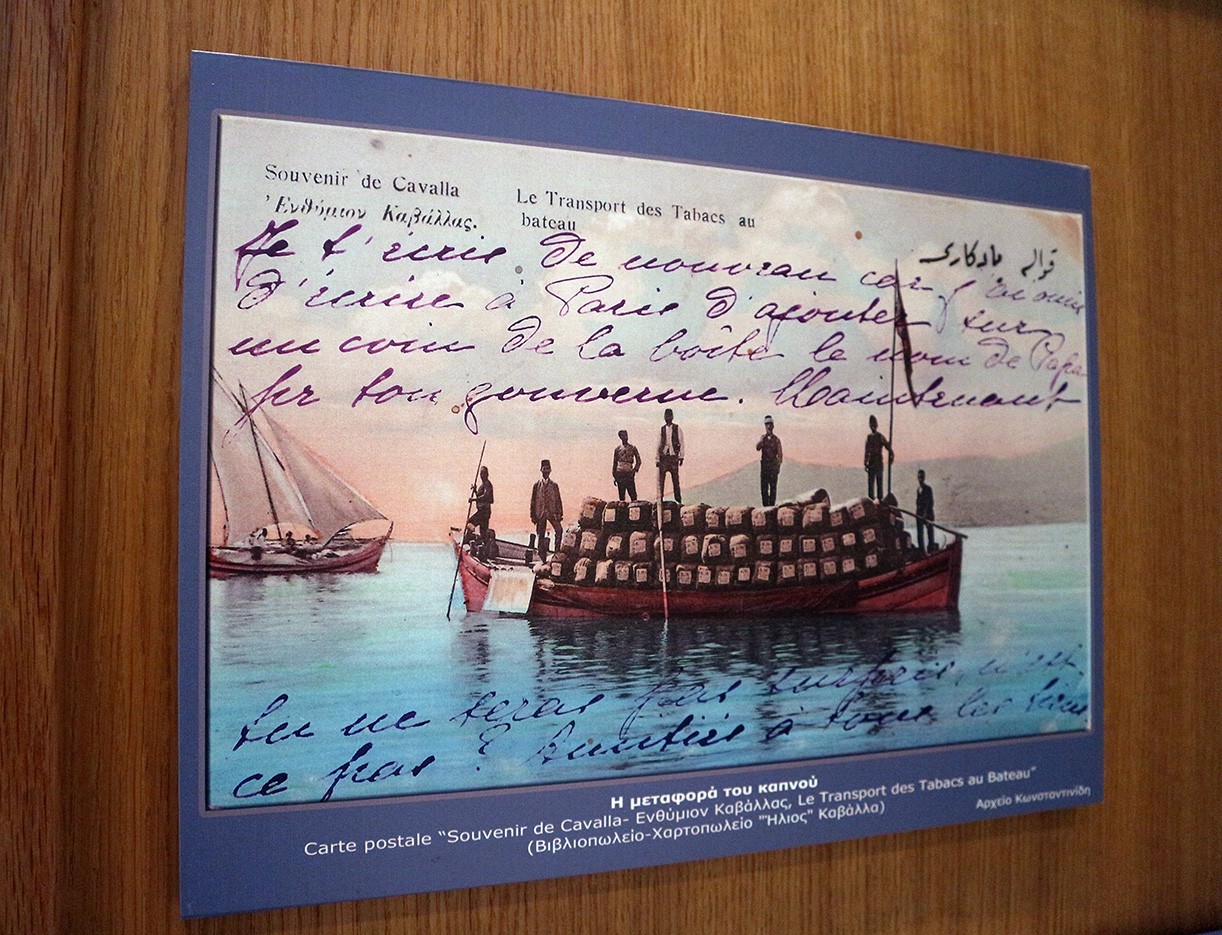 Souvenir de Cavalla
Ἐνθύμιον Καβάλλας.
Le Transport des Tabacs au
bateau
قواله يادكارى
Je t'écris de nouveau car j'ai omis
d'écrire à Paris d'ajouter sur
un coin de la boîte le nom de Papa
pr ton gouverne. Maintenant
tu ne seras pas surpris, n'est
ce pas ? Amitiés à tous les tiens
Η μεταφορά του καπνού
Carte postale “Souvenir de Cavalla- Ενθύμιον Καβάλλας, Le Transport des Tabacs au Bateau”
(Βιβλιοπωλείο-Χαρτοπωλείο "Ήλιος" Καβάλλα)
Αρχείο Κωνσταντινίδη